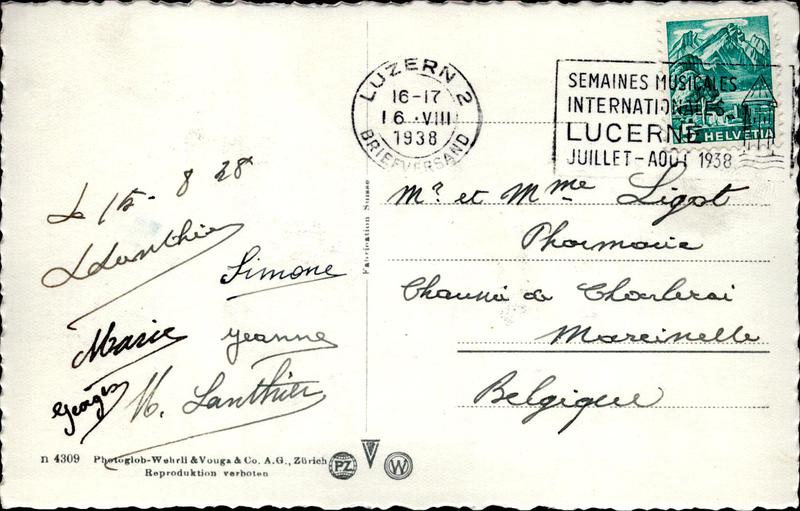 LUZERN 2
16-17
16.VIII
1938
BRIEFVERSAND
SEMAINES MUSICALES
INTERNATIONALES
LUCERNE
JUILLET-AOUT 1938
HELVETIA
Le 15. 8 38
Lanthier
Simone
Marie Jeanne
Georges M. Lanthier
Fabrication Suisse
Mr et Mme Ligot
Pharmacie
Chaussée de Charleroi
Marcinelle
Belgique
n 4309 Photoglob-Wehrli & Vouga & Co. A.G., Zürich
Reproduktion verboten
PZ
W